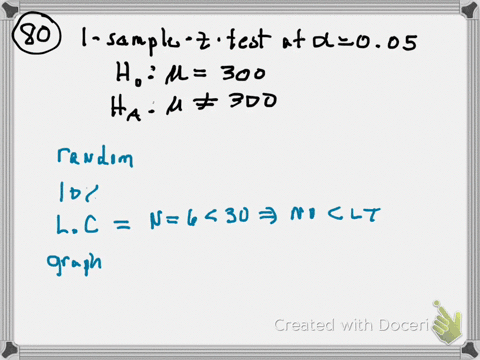 80
1-sample-z-test at α=0.05
H₀: μ = 300
H_A: μ ≠ 300
random
10%
L.C = N=6<30 ⇒ no CLT
graph
Created with Doceri